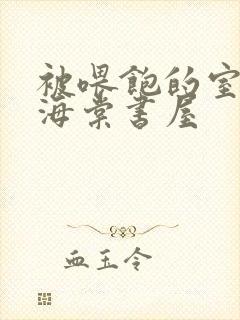 被喂饱的室
海棠书屋
血玉令